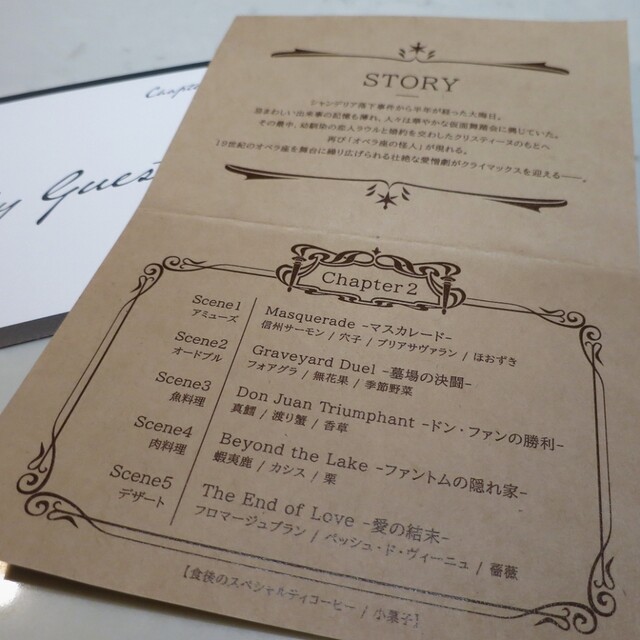 Chapte
y Guest
STORY
シャンデリア落下事件から半年が経った大晦日。
忌まわしい出来事の記憶も薄れ、人々は華やかな仮面舞踏会に興じていた。
その最中、幼馴染の恋人ラウルと婚約を交わしたクリスティーヌのもとへ
再び「オペラ座の怪人」が現れる。
19世紀のオペラ座を舞台に繰り広げられる壮絶な愛憎劇がクライマックスを迎える──。
Chapter 2
Scene1
アミューズ
Masquerade -マスカレード-
信州サーモン / 穴子 / ブリアサヴァラン / ほおずき
Scene2
オードブル
Graveyard Duel -墓場の決闘-
フォアグラ / 無花果 / 季節野菜
Scene3
魚料理
Don Juan Triumphant -ドン・ファンの勝利-
真鱈 / 渡り蟹 / 香草
Scene4
肉料理
Beyond the Lake -ファントムの隠れ家-
蝦夷鹿 / カシス / 栗
Scene5
デザート
The End of Love -愛の結末-
フロマージュブラン / ペッシュ・ド・ヴィーニュ / 薔薇
【食後のスペシャルティコーヒー / 小菓子】